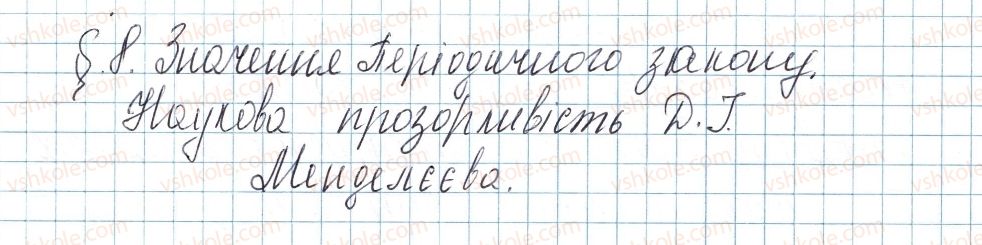 §.8. Значення Періодичного закону.
Наукова прозорливість Д.І.
Менделєєва.